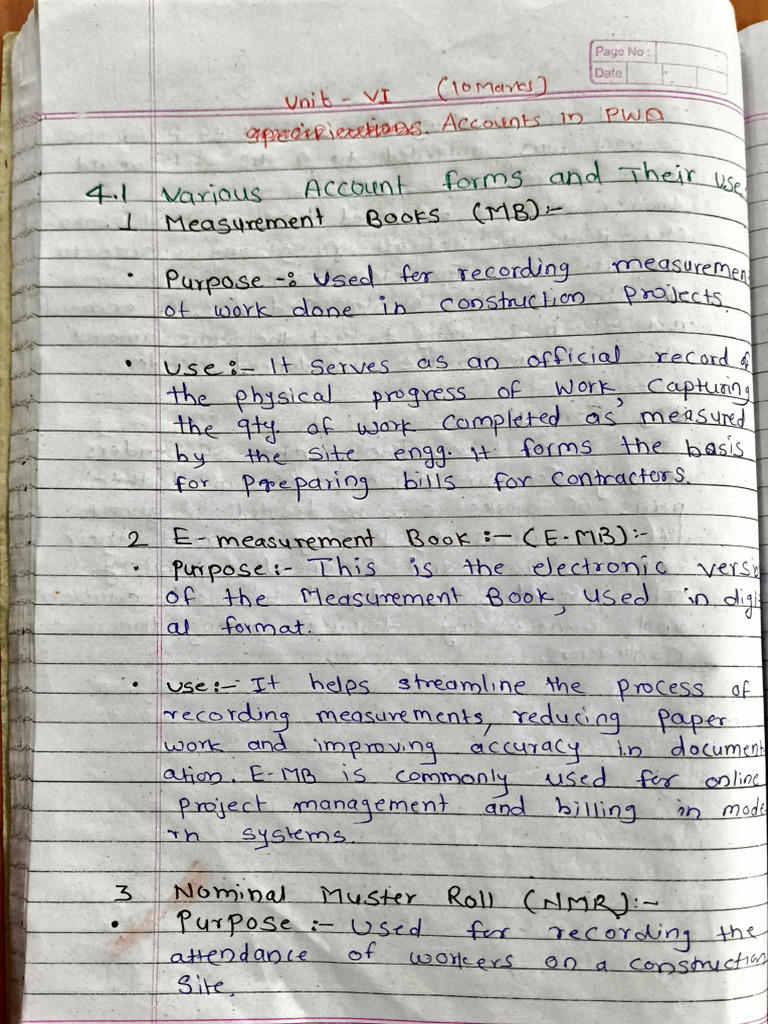 Page No :
Date
Unit - VI (10 Marks)
Accounts in PWD
4.1 Various Account forms and Their Use
1 Measurement Books (MB):-
• Purpose -: Used for recording measuremen
of work done in construction projects.
• Use :- It serves as an official record of
the physical progress of work, capturing
the qty. of work completed as measured
by the site engg. It forms the basis
for preparing bills for contractors.
2 E-measurement Book :- (E-MB):-
• Purpose :- This is the electronic versi
of the Measurement Book, used in digi
al format.
• Use :- It helps streamline the process of
recording measurements, reducing paper
work and improving accuracy in document
ation. E-MB is commonly used for online
project management and billing in mode
rn systems.
3 Nominal Muster Roll (NMR):-
• Purpose :- Used for recording the
attendance of workers on a construction
Site.